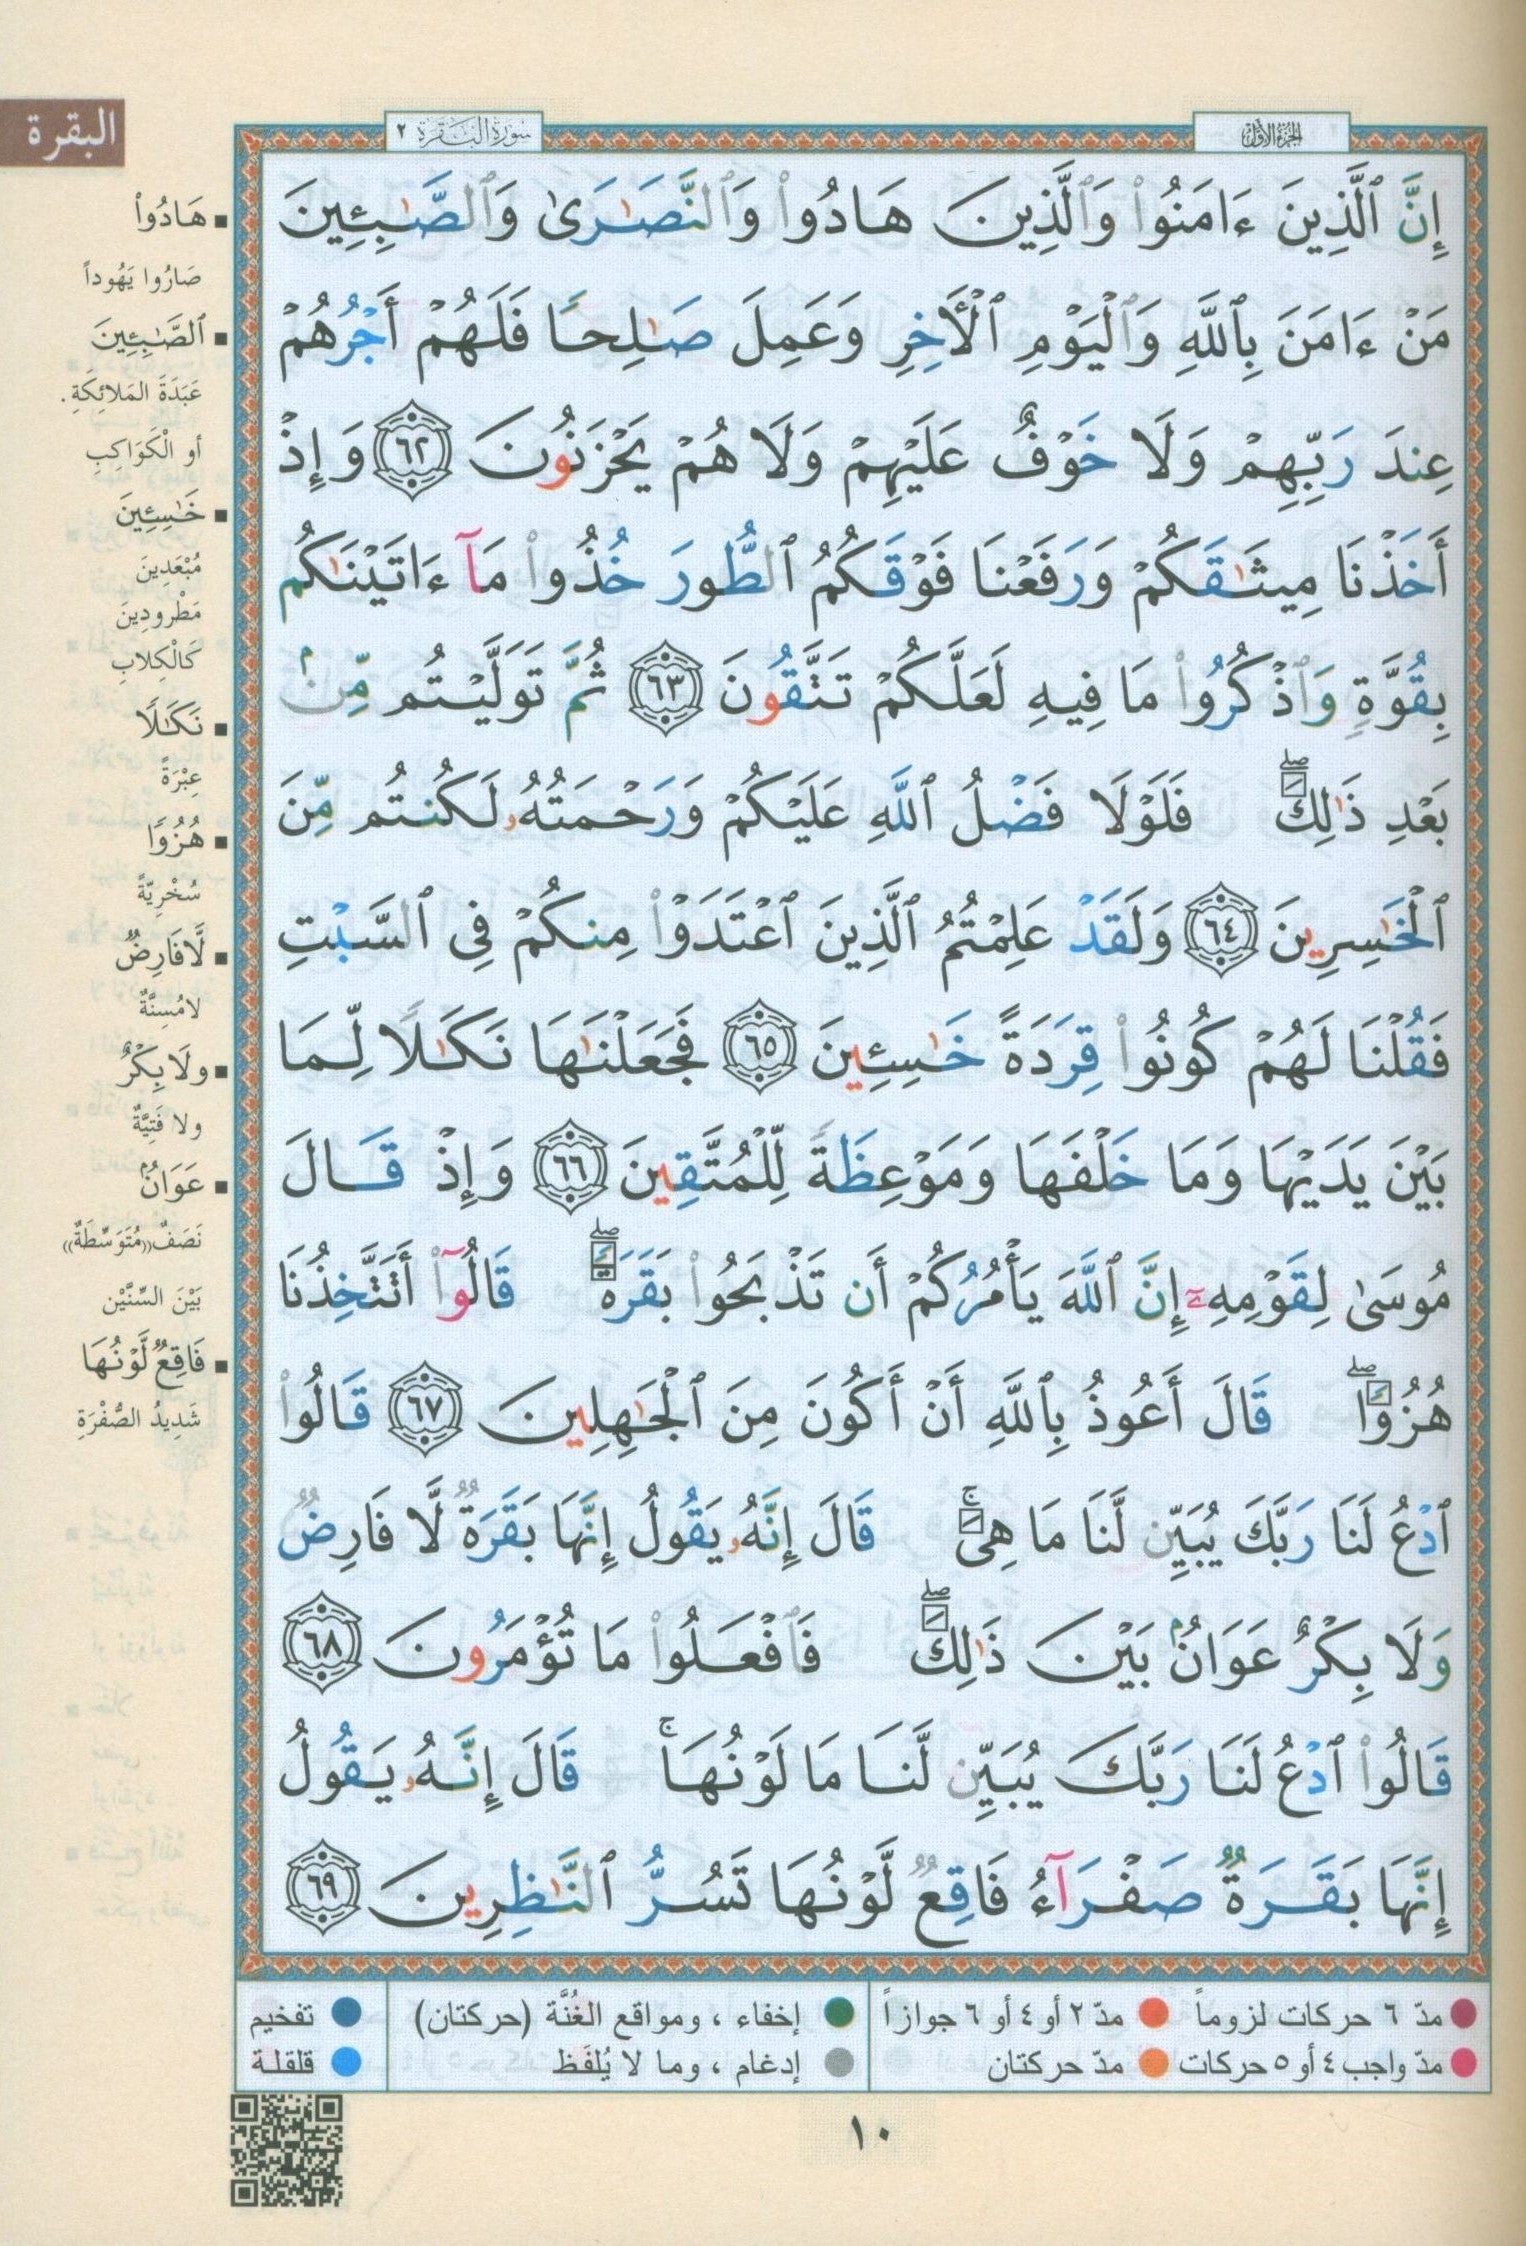 الجزء الأول
سورة البقرة ٢
البقرة
إِنَّ ٱلَّذِينَ ءَامَنُوا۟ وَٱلَّذِينَ هَادُوا۟ وَٱلنَّصَـٰرَىٰ وَٱلصَّـٰبِـِٔينَ
مَنْ ءَامَنَ بِٱللَّهِ وَٱلْيَوْمِ ٱلْـَٔاخِرِ وَعَمِلَ صَـٰلِحًا فَلَهُمْ أَجْرُهُمْ
عِندَ رَبِّهِمْ وَلَا خَوْفٌ عَلَيْهِمْ وَلَا هُمْ يَحْزَنُونَ ٦٢ وَإِذْ
أَخَذْنَا مِيثَـٰقَكُمْ وَرَفَعْنَا فَوْقَكُمُ ٱلطُّورَ خُذُوا۟ مَآ ءَاتَيْنَـٰكُم
بِقُوَّةٍ وَٱذْكُرُوا۟ مَا فِيهِ لَعَلَّكُمْ تَتَّقُونَ ٦٣ ثُمَّ تَوَلَّيْتُم مِّنۢ
بَعْدِ ذَٰلِكَ ۖ فَلَوْلَا فَضْلُ ٱللَّهِ عَلَيْكُمْ وَرَحْمَتُهُۥ لَكُنتُم مِّنَ
ٱلْخَـٰسِرِينَ ٦٤ وَلَقَدْ عَلِمْتُمُ ٱلَّذِينَ ٱعْتَدَوْا۟ مِنكُمْ فِى ٱلسَّبْتِ
فَقُلْنَا لَهُمْ كُونُوا۟ قِرَدَةً خَـٰسِـِٔينَ ٦٥ فَجَعَلْنَـٰهَا نَكَـٰلًا لِّمَا
بَيْنَ يَدَيْهَا وَمَا خَلْفَهَا وَمَوْعِظَةً لِّلْمُتَّقِينَ ٦٦ وَإِذْ قَالَ
مُوسَىٰ لِقَوْمِهِۦٓ إِنَّ ٱللَّهَ يَأْمُرُكُمْ أَن تَذْبَحُوا۟ بَقَرَةً ۖ قَالُوٓا۟ أَتَتَّخِذُنَا
هُزُوًا ۖ قَالَ أَعُوذُ بِٱللَّهِ أَنْ أَكُونَ مِنَ ٱلْجَـٰهِلِينَ ٦٧ قَالُوا۟
ٱدْعُ لَنَا رَبَّكَ يُبَيِّن لَّنَا مَا هِىَ ۚ قَالَ إِنَّهُۥ يَقُولُ إِنَّهَا بَقَرَةٌ لَّا فَارِضٌ
وَلَا بِكْرٌ عَوَانٌۢ بَيْنَ ذَٰلِكَ ۖ فَٱفْعَلُوا۟ مَا تُؤْمَرُونَ ٦٨
قَالُوا۟ ٱدْعُ لَنَا رَبَّكَ يُبَيِّن لَّنَا مَا لَوْنُهَا ۚ قَالَ إِنَّهُۥ يَقُولُ
إِنَّهَا بَقَرَةٌ صَفْرَآءُ فَاقِعٌ لَّوْنُهَا تَسُرُّ ٱلنَّـٰظِرِينَ ٦٩
▪ هَادُوا۟
صَارُوا يَهُوداً
▪ ٱلصَّـٰبِـِٔينَ
عَبَدَةَ المَلائِكَةِ.
أو الْكَوَاكِبِ
▪ خَـٰسِـِٔينَ
مُبْعَدِينَ
مَطْرودِينَ
كَالْكِلابِ
▪ نَكَـٰلًا
عِبْرَةً
▪ هُزُوًا
سُخْرِيّةً
▪ لَّا فَارِضٌ
لا مُسِنَّةٌ
▪ ولَا بِكْرٌ
ولا فَتِيَّةٌ
▪ عَوَانٌۢ
نَصَفٌ ((مُتَوَسِّطَةٌ))
بَيْنَ السِّنَّيْن
▪ فَاقِعٌ لَّوْنُهَا
شَدِيدُ الصُّفْرَةِ
● مدّ ٦ حركات لزوماً ● مدّ ٢ أو ٤ أو ٦ جوازاً ● إخفاء ، ومواقع الغُنَّة (حركتان) ● تفخيم
● مدّ واجب ٤ أو ٥ حركات ● مدّ حركتان ● إدغام ، وما لا يُلفَظ ● قلقلة
١٠